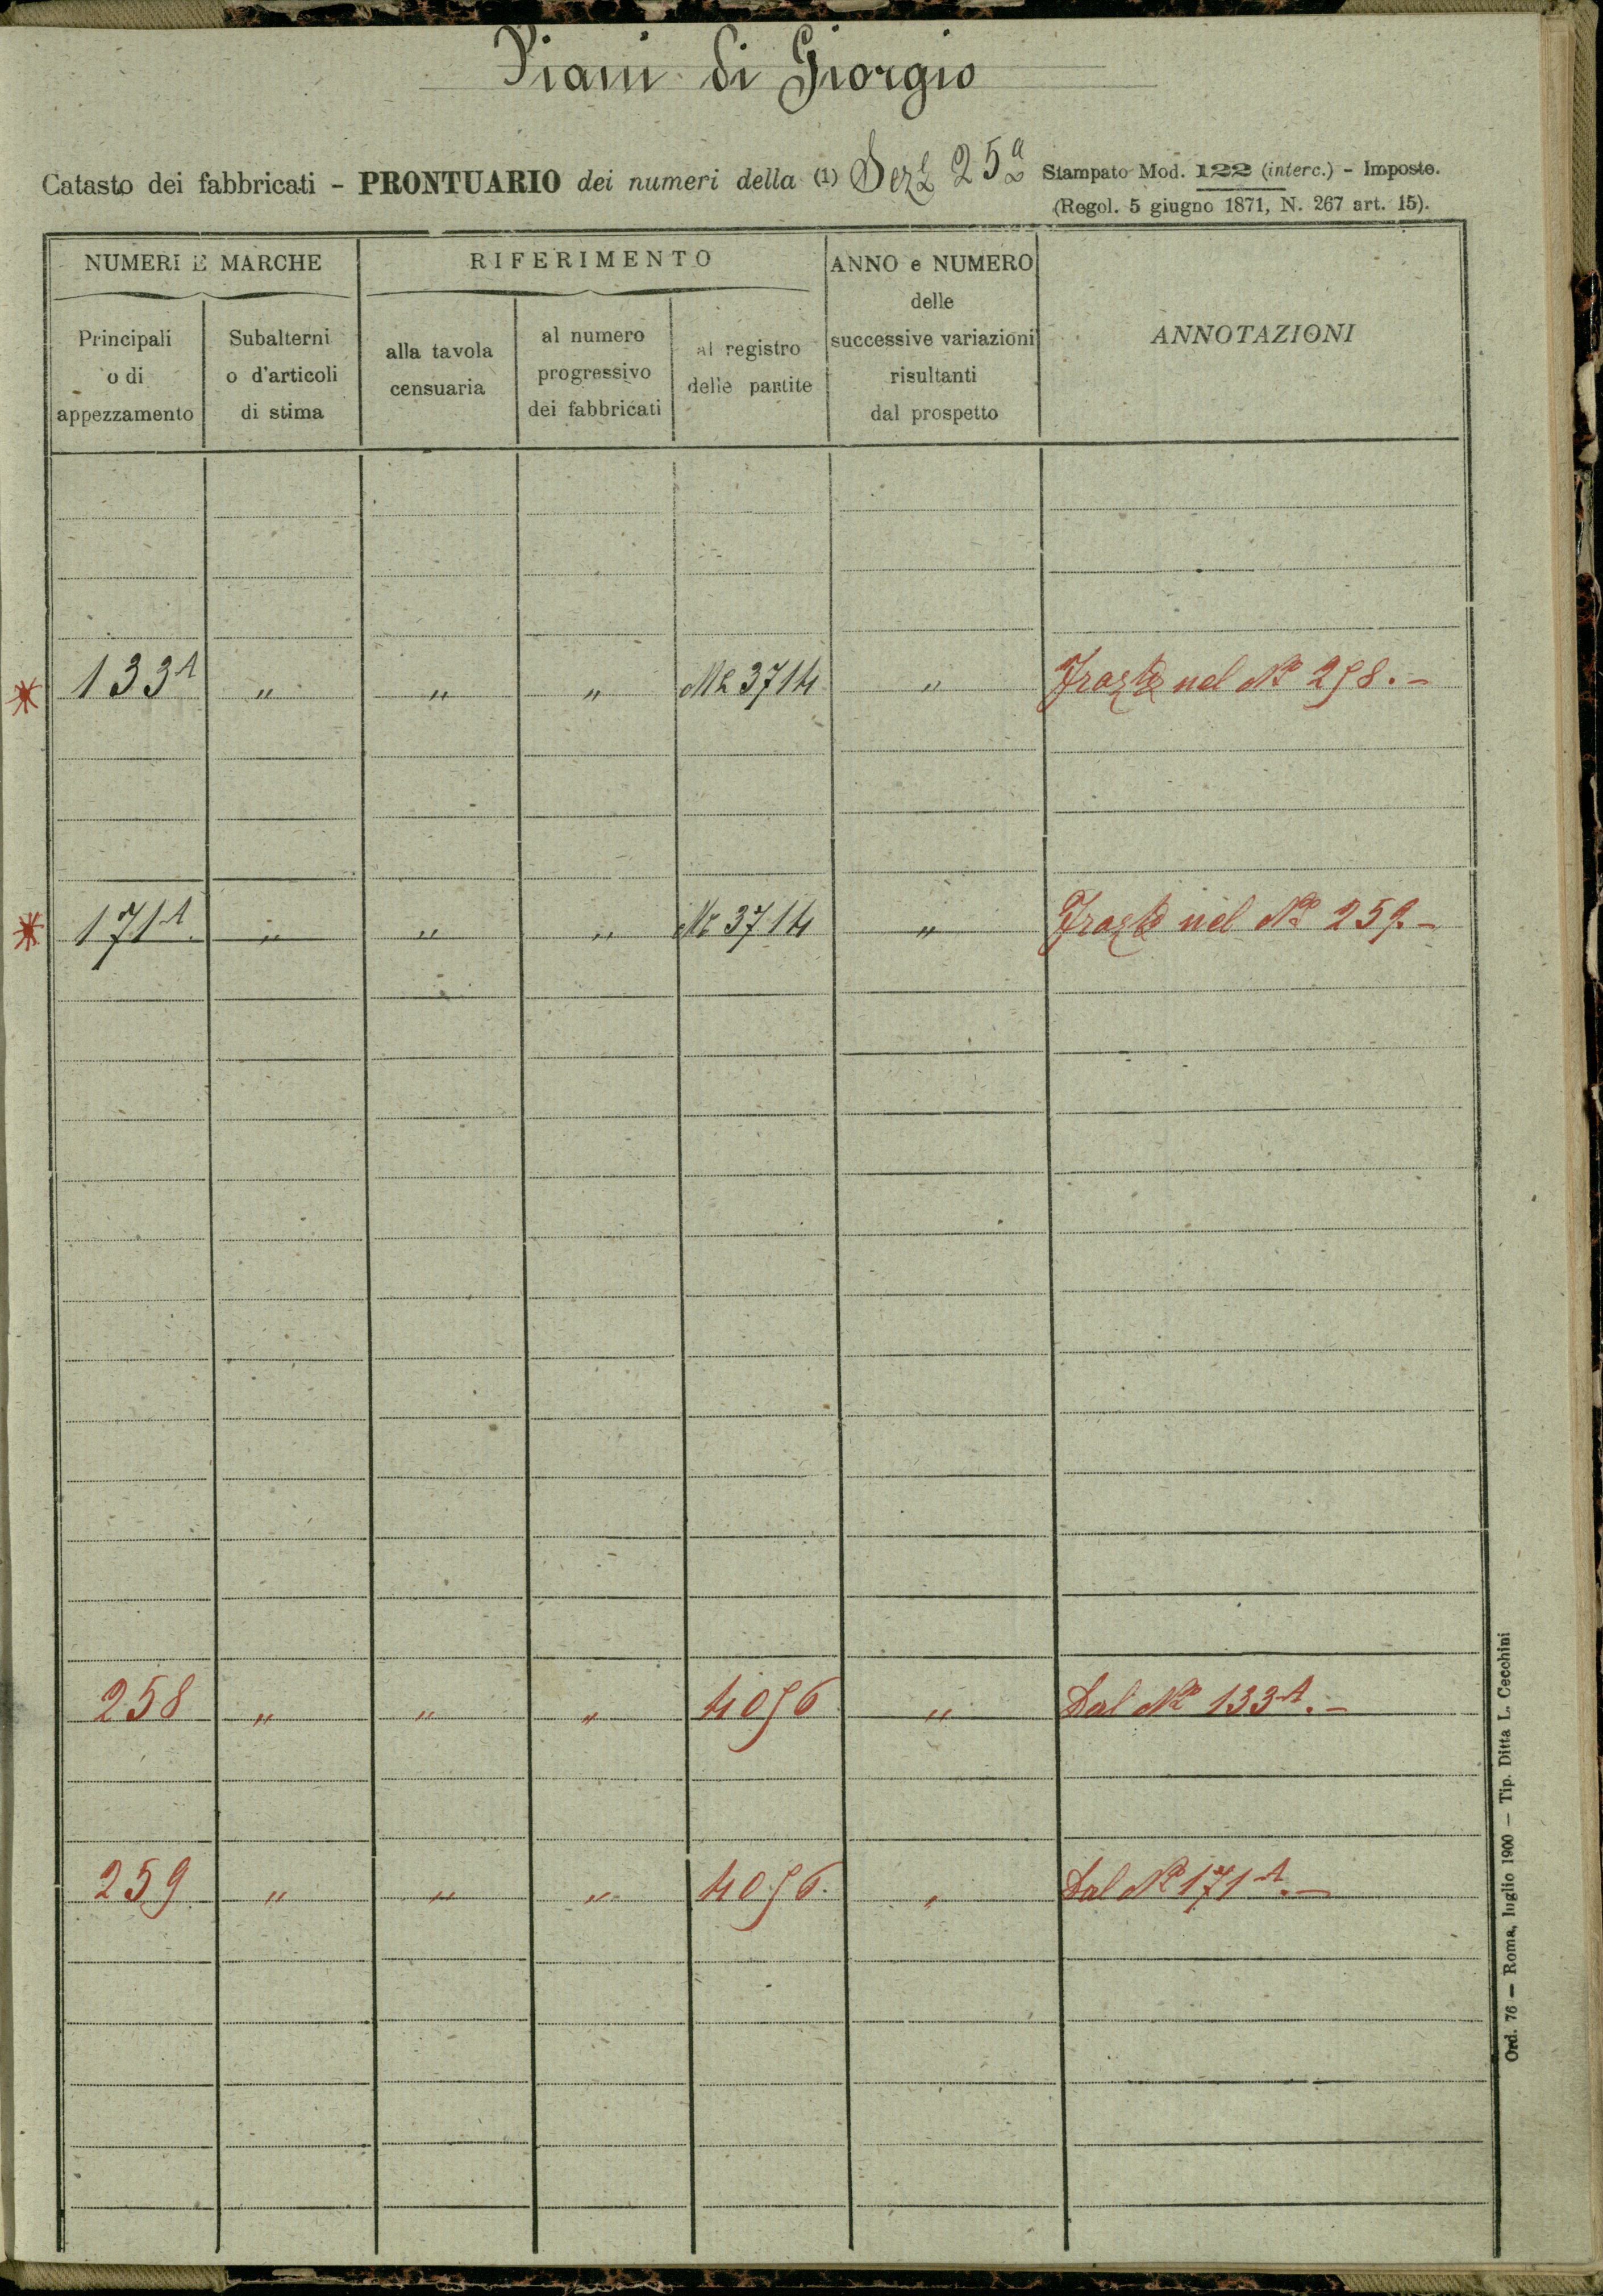 Piani di Giorgio
Catasto dei fabbricati - PRONTUARIO dei numeri della (1) Sez.e 25a
Stampato Mod. 122 (interc.) - Imposte.
(Regol. 5 giugno 1871, N. 267 art. 15).
NUMERI E MARCHE
Principali
o di
appezzamento
Subalterni
o d'articoli
di stima
RIFERIMENTO
alla tavola
censuaria
al numero
progressivo
dei fabbricati
al registro
delle partite
ANNO e NUMERO
delle
successive variazioni
risultanti
dal prospetto
ANNOTAZIONI
133A " " " 3714 " nel No 258. -
171A. " " " 3714 " nel No 259. -
258 " " " 4056 " Dal No 133A. -
259 " " " 4056. " Dal No 171A. -
Ord. 76 — Roma, luglio 1900 — Tip. Ditta L. Cecchini